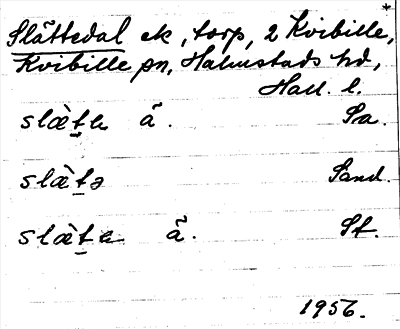 *
Slättedal ek, torp, 2 Kvibille,
Kvibille sn, Halmstads hd,
Hall. l.
slæ̀ta ã. Sa.
slæ̀tə Sand.
slæ̀ta ã. Sf.
1956.